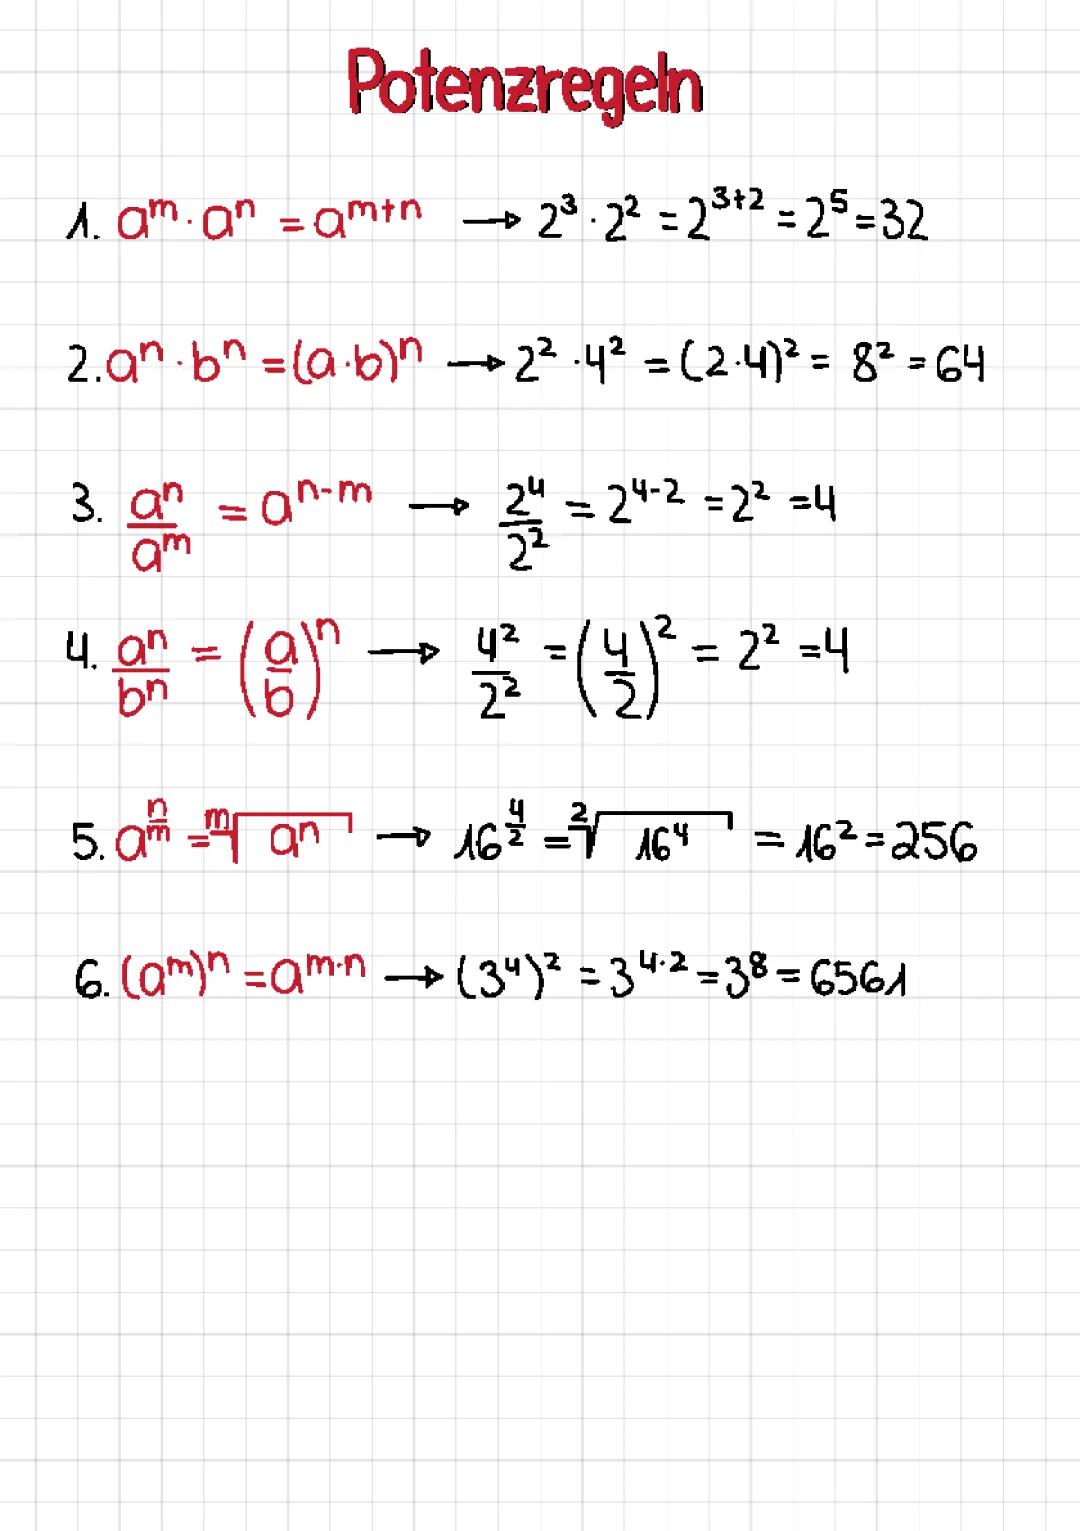 Potenzregeln
1. aᵐ · aⁿ = aᵐ⁺ⁿ → 2³ · 2² = 2³⁺² = 2⁵ = 32
2. aⁿ · bⁿ = (a · b)ⁿ → 2² · 4² = (2 · 4)² = 8² = 64
3. aⁿ/aᵐ = aⁿ⁻ᵐ → 2⁴/2² = 2⁴⁻² = 2² = 4
4. aⁿ/bⁿ = (a/b)ⁿ → 4²/2² = (4/2)² = 2² = 4
5. a^(n/m) = ᵐ√aⁿ → 16^(4/2) = ²√16⁴ = 16² = 256
6. (aᵐ)ⁿ = a^(m·n) → (3⁴)² = 3^(4·2) = 3⁸ = 6561